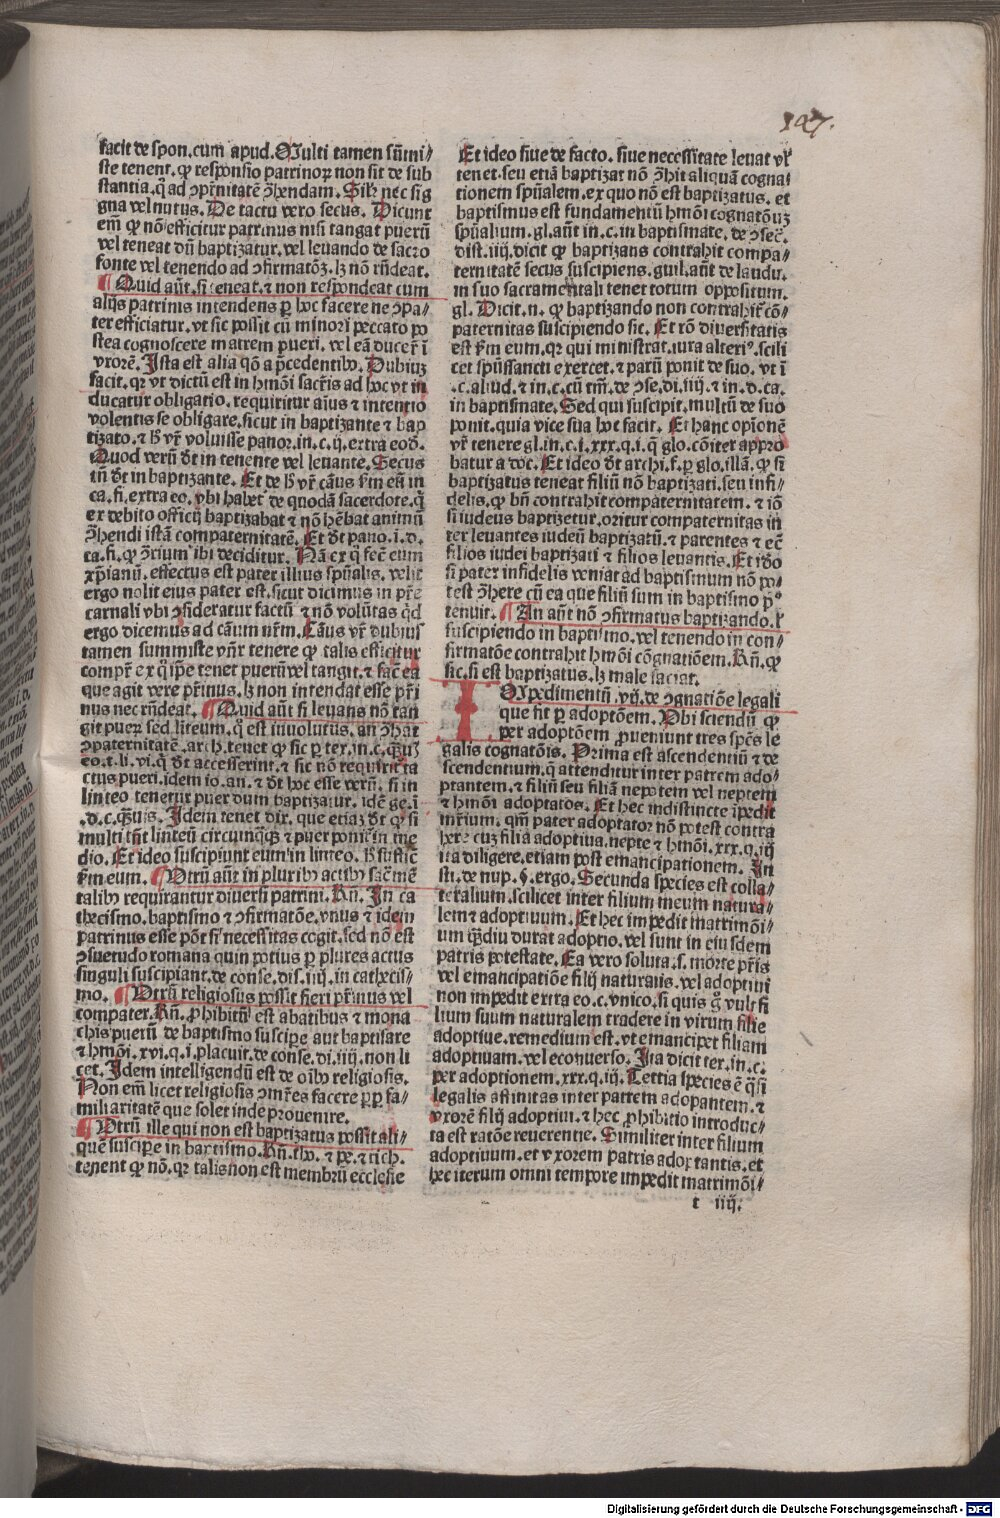 147.
facit de spon. cum apud. Multi tamen sūmi⸗
ste tenent. ꝙ responsio patrinoꝝ non sit de sub
stantia. q̄ ad ꝯpr̄nitatē ꝯhendam. Silr̄ nec sig
gna vel nutus. De tactu vero secus. Dicunt
em̄ ꝙ nō efficitur patrinus nisi tangat puerū
vel teneat dū baptizatur. vel leuando de sacro
fonte vel tenendo ad ꝯfirmatōꝫ. lꝫ nō rn̄deat.
¶ Quid aūt. si teneat. ⁊ non respondeat cum
alijs patrinis intendens ꝑ hoc facere ne ꝯpa⸗
ter efficiatur. vt sic possit cū minori peccato po
stea cognoscere matrem pueri. vel eā ducere ī
vxorē. Ista est alia qō a p̄cedentibꝰ. Dubiuꝫ
facit. qꝛ vt dictū est in hmōi sacr̄is ad hoc vt in
ducatur obligatio. requiritur aīus ⁊ intentio
volentis se obligare. sicut in baptizante ⁊ bap
tizato. ⁊ h̄ vr̄ voluisse panor. in. c. ij. extra eod.
Quod verū d̄t in tenente vel leuante. Secus
in d̄t in baptizante. Et de h̄ vr̄ cāus f̄m eū in
ca. fi. extra eo. vbi habet᷑ de quodā sacerdote. q̄
ex debito officij baptizabat ⁊ nō hēbat animū
ꝯhendi istā compaternitatē. Et d̄t pano. i. d.
ca. fi. ꝙ ꝯrium ibi deciditur. Nā ex q̄ fec̄ eum
xp̄ianū. effectus est pater illius spūalis. velit
ergo nolit eius pater est. sicut dicimus in pr̄e
carnali vbi ꝯsideratur factū ⁊ nō volūtas q̄d
ergo dicemus ad cāum nr̄m. Cāus vr̄ dubius
tamen summiste vn̄r tenere ꝙ talis efficitur
compr̄ ex q̄ ip̄e tenet puerū vel tangit. ⁊ fac̄ ea
que agit vere pr̄inus. lꝫ non intendat esse pr̄i
nus nec rn̄deat. ¶ Quid aūt si leuans nō tan
git puer sed liteum. q̄ est inuolutus. an ꝯhat
ꝯpaternitatē. arch. tenet ꝙ sic ꝑ tex. in. c. q̄uꝫ
eo. t. li. vi. q̄ d̄t accesserint. ⁊ sic nō requirit ta
ctus pueri. idem io. an. ⁊ d̄t hoc esse verū. si in
linteo tenetur puer dum baptizatur. idē ge. ī
.d. c. q̄uis. Idem tenet dir. que etiaꝫ d̄t ꝙ si
multi tn̄t linteū circumq̄q̄ ⁊ puer ponit᷑ in me
dio. Et ideo suscipiunt eum in linteo. h̄ suffic̄
f̄m eum. ¶ Vtrū aūt in pluribꝰ actibꝰ sacr̄mē
talibꝰ requirantur diuersi patrini. Rn̄. In ca
thecismo. baptismo ⁊ ꝯfirmatōe. vnus ⁊ idem
patrinus esse pōt si necessitas cogit. sed nō est
ꝯsuetudo romana quin potius ꝑ plures actus
singuli suscipiant. de conse. dis. iiij. in cathecis⸗
mo. ¶ Vtrū religiosus possit fieri pr̄inus vel
compater. Rn̄. ꝓhibitū est abatibus ⁊ mona
chis puerū de baptismo suscipe aut baptisare
⁊ hmōi. xvi. q. i. placuit. de conse. di. iiij. non li
cet. Idem intelligendū est de oībꝰ religiosis.
Non em̄ licet religiosis ꝯmr̄es facere ꝓp fa⸗
miliaritatē que solet inde prouenire.
¶ Vtrū ille qui non est baptizatus possit ali⸗
quē suscipere in baptismo. Rn̄. tho. ⁊ pe. ⁊ rich.
tenent ꝙ nō. qꝛ talis non est membrū ecclesie
Et ideo siue de facto. siue necessitate leuat vr̄
tenet. seu etiā baptizat nō ꝯhit aliquā cogna⸗
tionem spūalem. ex quo nō est baptizatus. et
baptismus est fundamentū hmōi cognatōnuꝫ
spūalium. gl. aūt in. c. in baptismate. de ꝯsec̄.
dist. iiij. dicit ꝙ baptizans contrahit compa⸗
ternitatē secus suscipiens. guil. aūt de laudu.
in suo sacramentali tenet totum oppositum.
gl. Dicit. n. ꝙ baptizando non contrahit᷑ cō⸗
paternitas suscipiendo sic. Et rō diuersitatis
est f̄m eum. qꝛ qui ministrat. iura alteriꝰ. scili
cet spūssancti exercet. ⁊ parū ponit de suo. vt ī
.c. aliud. ⁊ in. c. cū tm̄. de ꝯse. di. iiij. ⁊ in. d. ca.
in baptismate. Sed qui suscipit. multū de suo
ponit. quia vice sua hoc facit. Et hanc opīonē
vr̄ tenere gl. in. c. i. xxx. q. i. q̄ glo. cōiter appro
batur a doc. Et ideo d̄t archi. s. ꝑ glo. illā. ꝙ si
baptizatus teneat filiū nō baptizati. seu infi⸗
delis. ꝙ bn̄ contrahit compaternitatem. ⁊ iō
si iudeus baptizetur. oritur compaternitas in
ter leuantes iudeū baptizatū. ⁊ parentes ⁊ ec̄
filios iudei baptizati ⁊ filios leuantis. Et ido
si pater infidelis veniat ad baptismum nō po⸗
test ꝯhere cū ea que filiū sum in baptismo pͦ
tenuit. ¶ An aūt nō ꝯfirmatus baptizando. l̄
suscipiendo in baptismo. vel tenendo in con⸗
firmatōe contrahit hmōi cōgnatiōem. Rn̄. ꝙ
sic. si est baptizatus. lꝫ male faciat.
IMpedimentū. vij. de ꝯgnatiōe legali
que fit ꝑ adoptōem. Vbi sciendū ꝙ
per adoptōem proueniunt tres spēs le
galis cognatōis. Prima est ascendentiū ⁊ de
scendentium. q̄ attenditur inter patrem ado⸗
ptantem. ⁊ filiū seu filiā nepotem vel neptem
⁊ hmōi adoptatos. Et hec indistincte īpedit
mr̄ium. qm̄ pater adoptator nō potest contra
here cuꝫ filia adoptiua. nepte ⁊ hmōi. xxx. q. iij
ita diligere. etiam post emancipationem. In
sti. de nup. §. ergo. Secunda species est colla⸗
teralium. scilicet inter filium meum natura⸗
lem ⁊ adoptiuum. Et hec impedit matrimōi⸗
um q̄diu durat adoptio. vel sunt in eiusdem
patris potestate. Ea vero soluta. s. morte pr̄is
vel emancipatiōe filij naturalis. vel adoptiui
non impedit extra eo. c. vnico. si quis g̊ vult fi
lium suum naturalem tradere in virum filie
adoptiue. remedium est. vt emancipet filiam
adoptiuam. vel econuerso. Ita dicit ter. in. c.
per adoptionem. xxx. q. iij. Tertia species ē q̄si
legalis affinitas inter patrem adopantem. ⁊
vxorē filij adoptiui. ⁊ hec ꝓhibitio introduc⸗
ta est ratōe reuerentie. Similiter inter filium
adoptiuum. et vxorem patris adoptantis. et
hec iterum omni tempore impedit matrimōi⸗
t iiij.
Digitalisierung gefördert durch die Deutsche Forschungsgemeinschaft - DFG